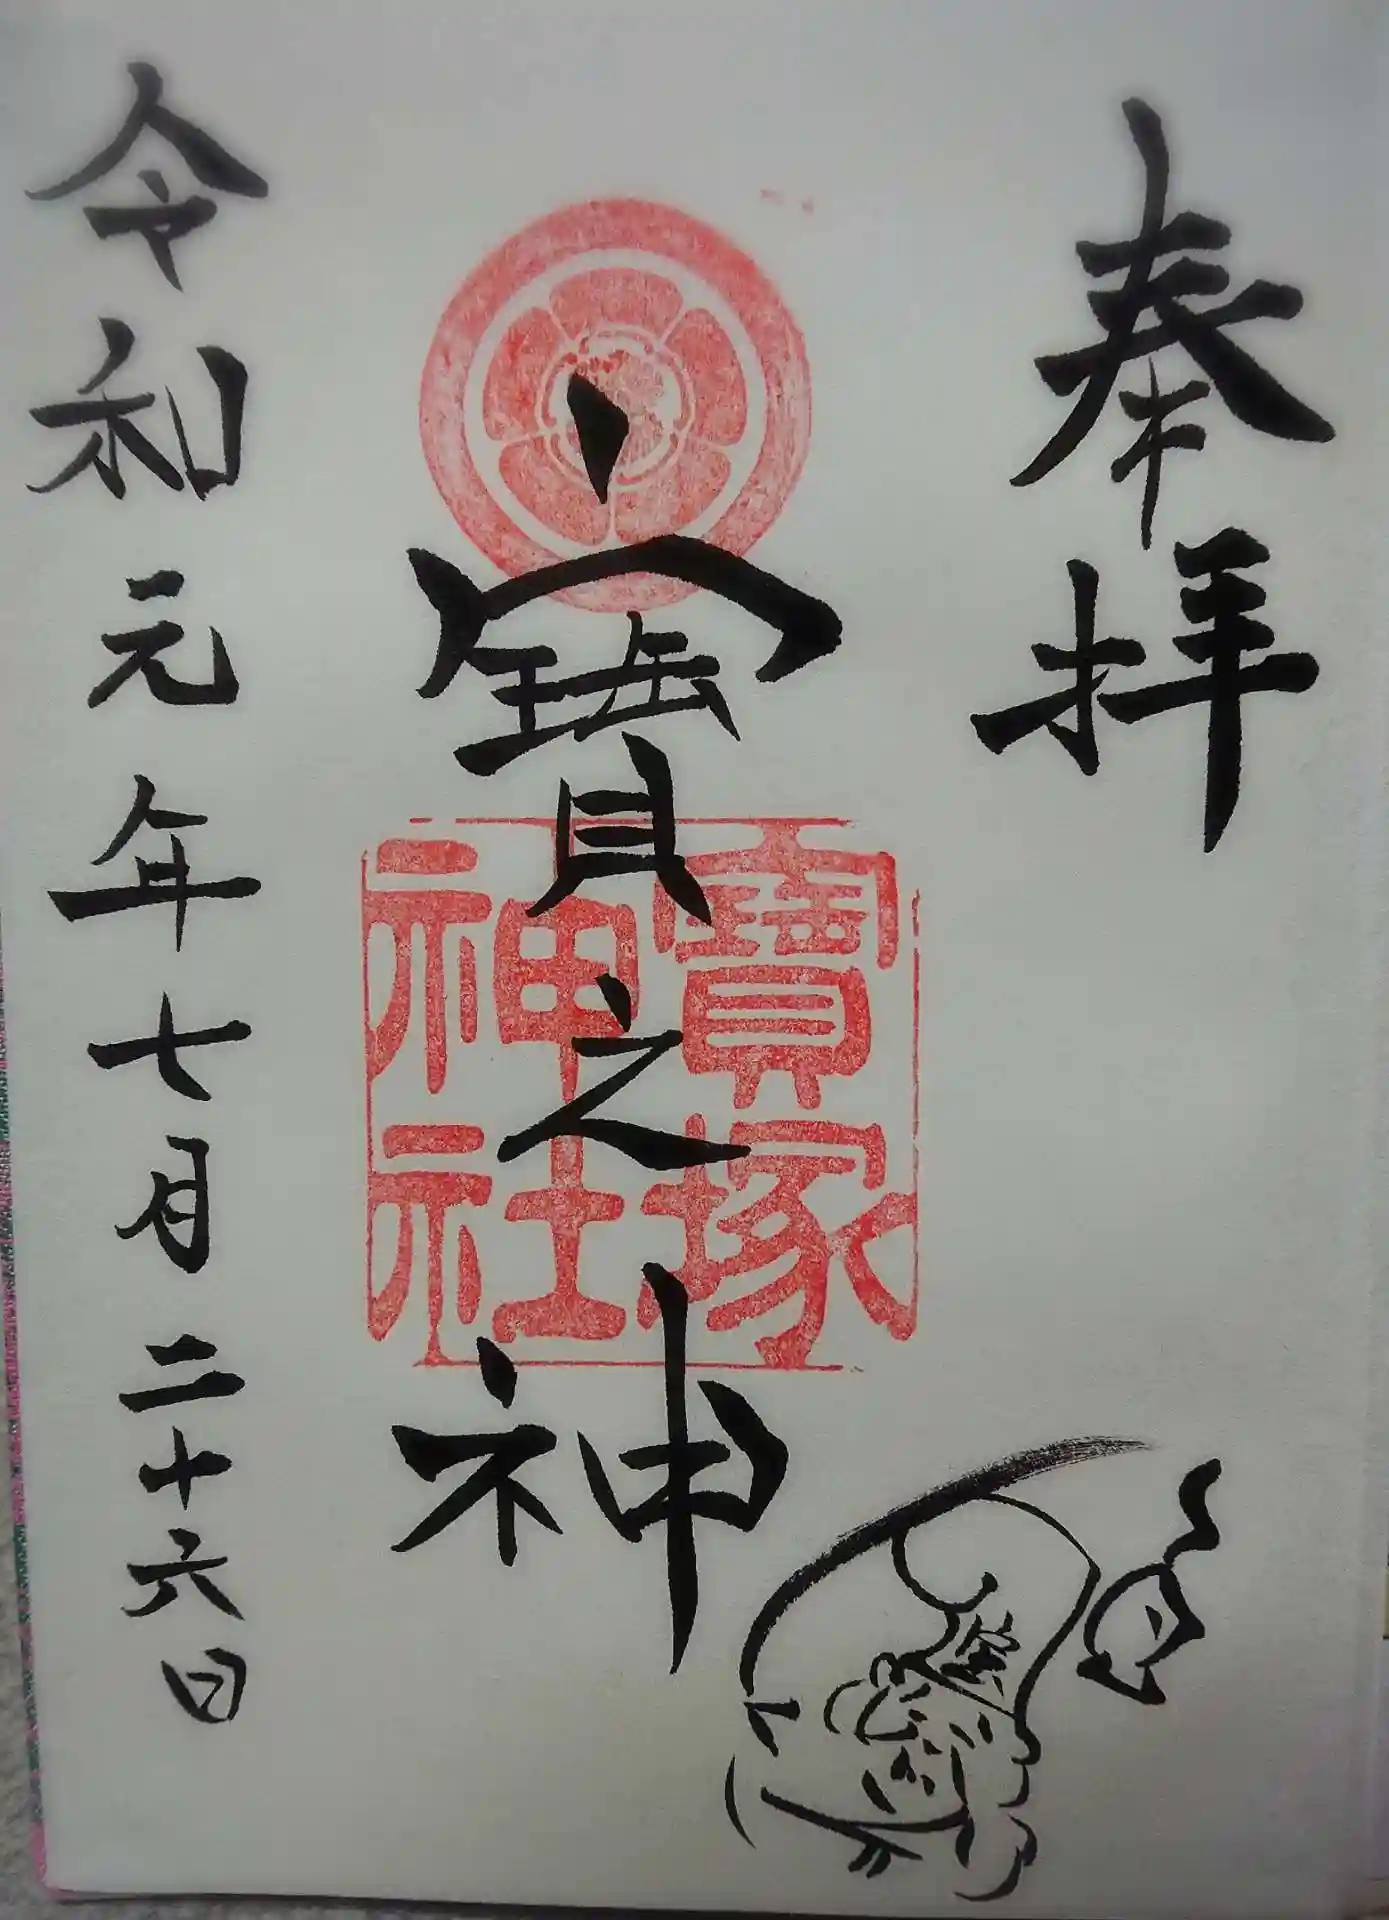 奉拝
寶之神
寶塚
神社
令和元年七月二十六日